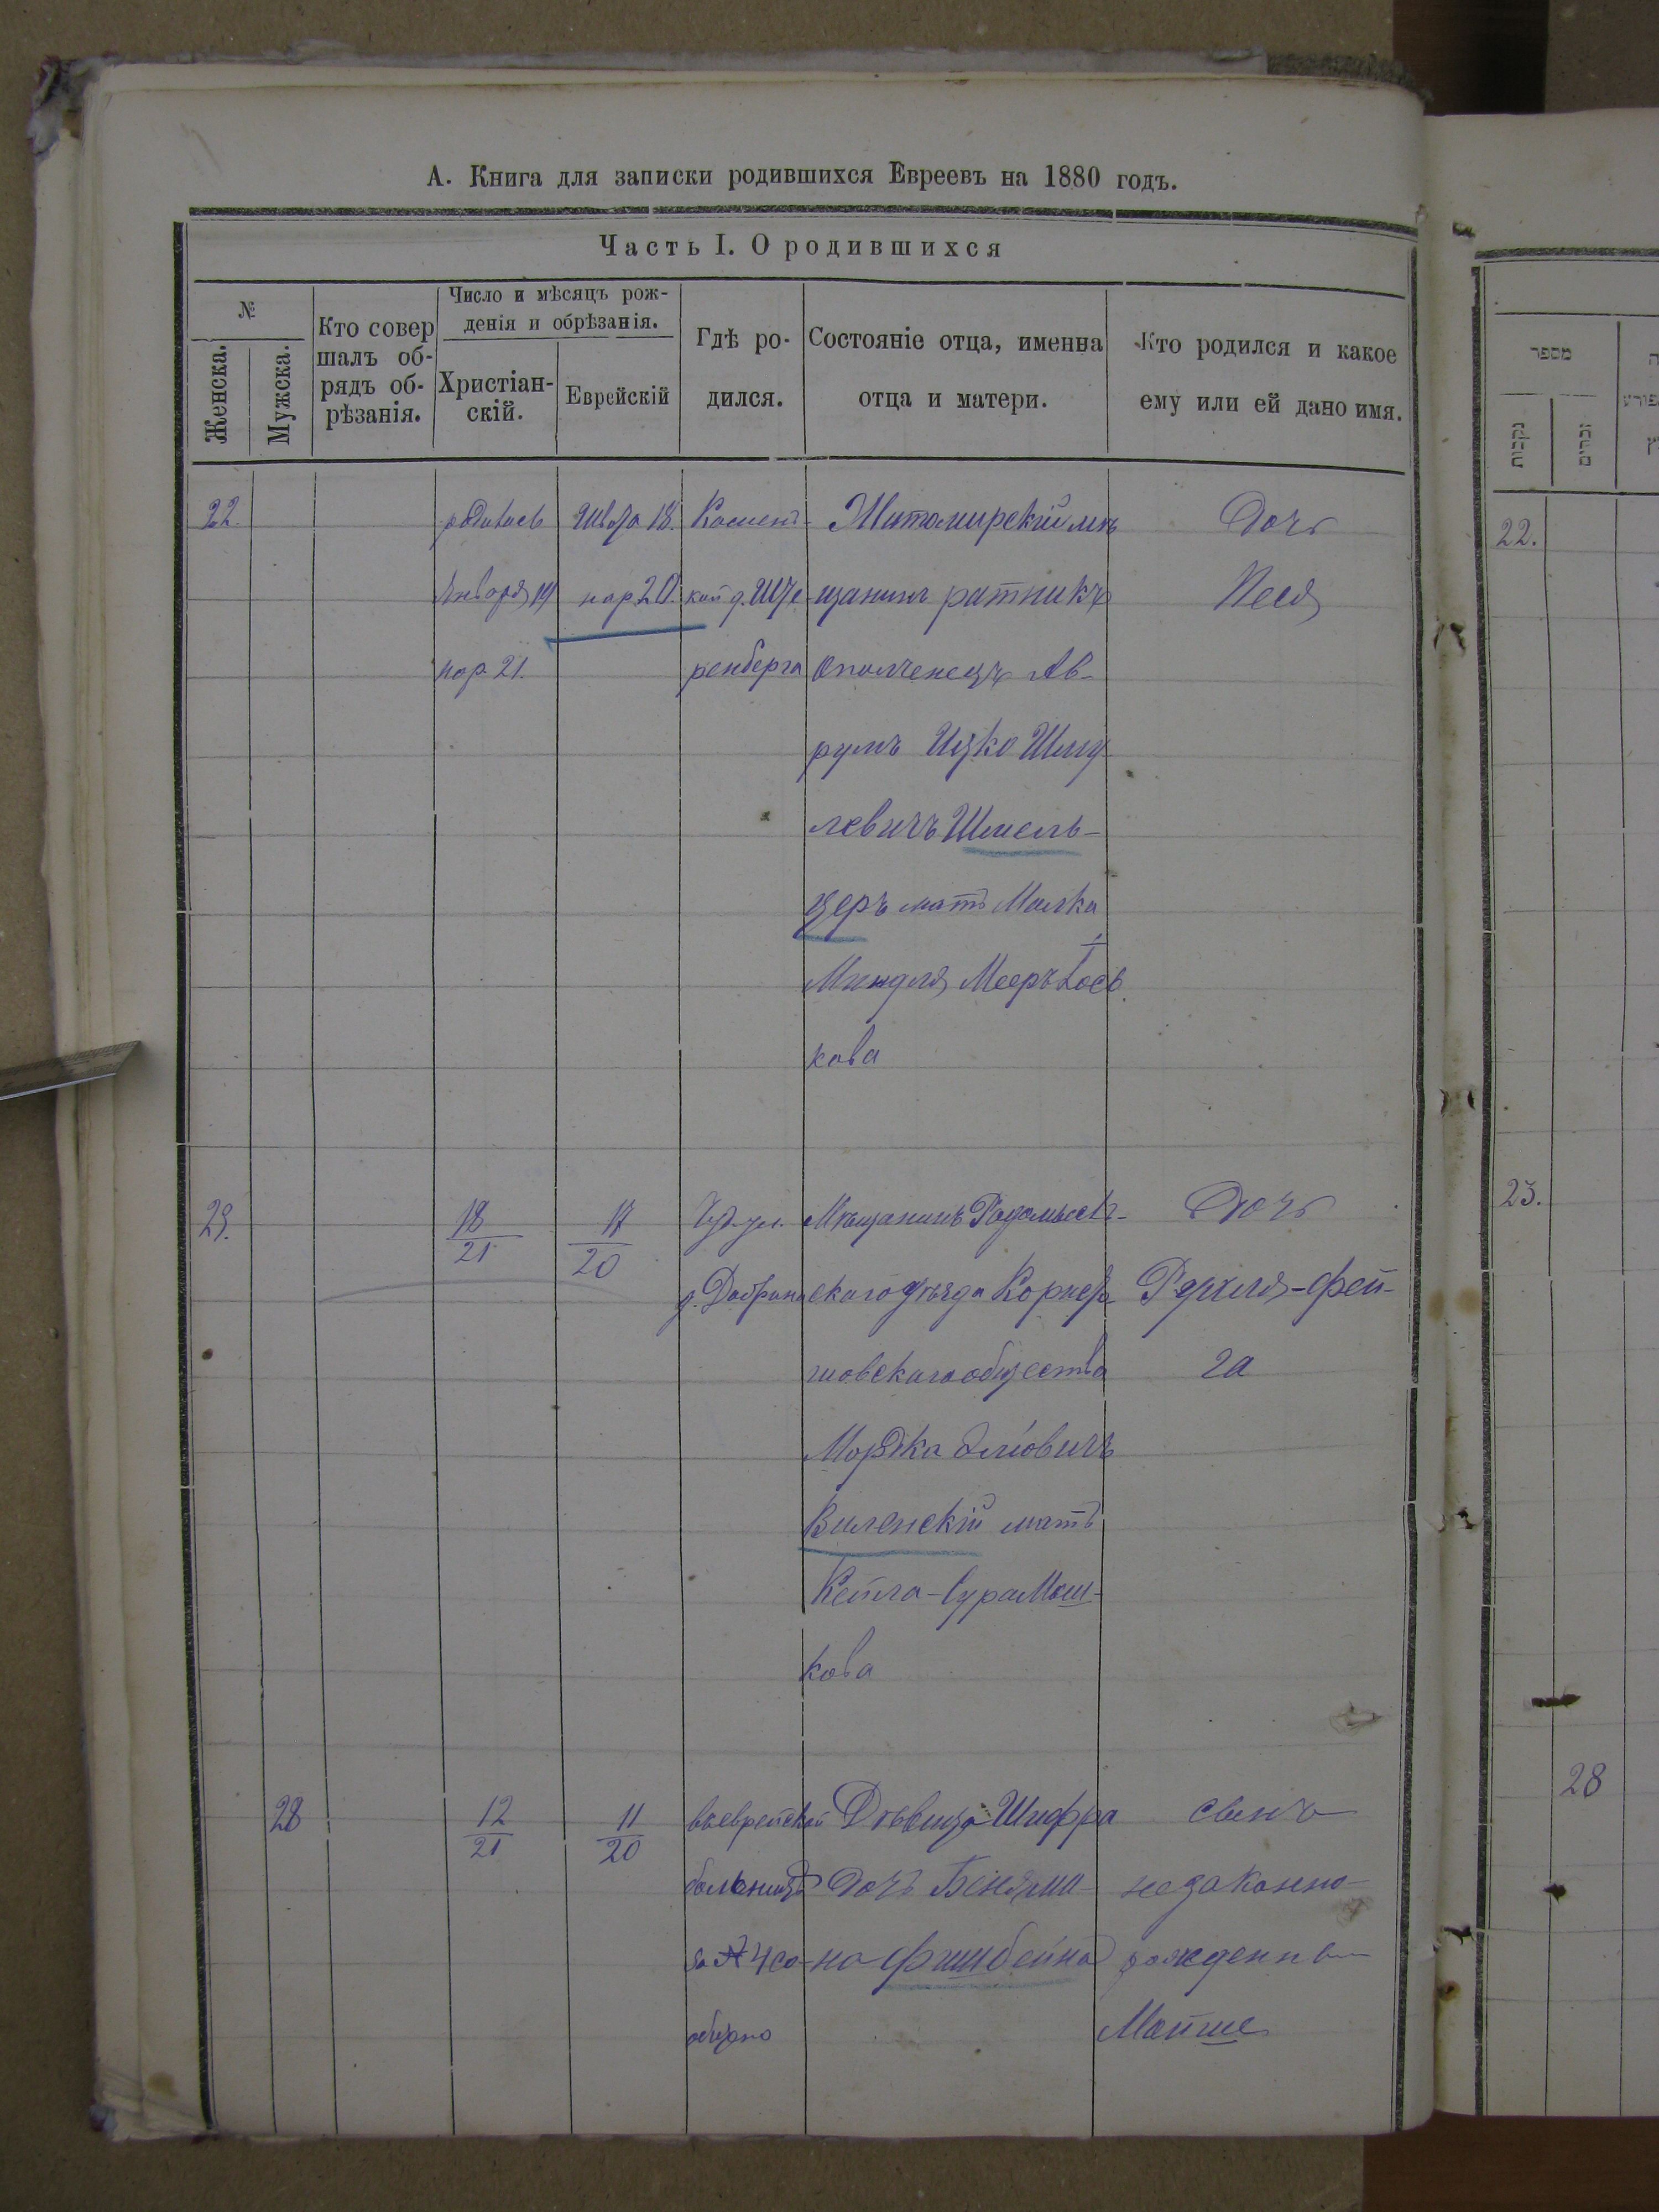 А. Книга для записки родившихся Евреевъ на 1880 годъ.
Часть I. О родившихся
№
Женска.
Мужска.
Кто совер
шалъ об-
рядъ об-
рѣзанія.
Число и мѣсяцъ рож-
денія и обрѣзанія.
Христіан-
скій.
Еврейскій
Гдѣ ро-
дился.
Состояніе отца, именна
отца и матери.
Кто родился и какое
ему или ей дано имя.
22.
родилась
Января 19
нар 21.
Швата 18.
нар 20.
ренберга
Житомирскій мѣ
щанинъ ратникъ
Ополченецъ Ав-
румъ Ицко Шму
левичъ Шмель-
церъ мать Малка
Миндля
кова
Дочь
Песя
23.
18
21
17
20
Мѣщанинъ Радомысль-
скаго уѣзда
шовскаго общества
Мордка Эліовичъ
Виленскій мать
Кейла-Сура Мош-
кова
Дочь
Рухля-Фей-
га
28
12
21
11
20
въ еврейской
больницѣ
Дѣвица Шифра
дочь Беніами-
на Фишбейна
сынъ
незаконно-
рожденный
Мойше
מספר
נקבות
זכרים
22.
23.
28